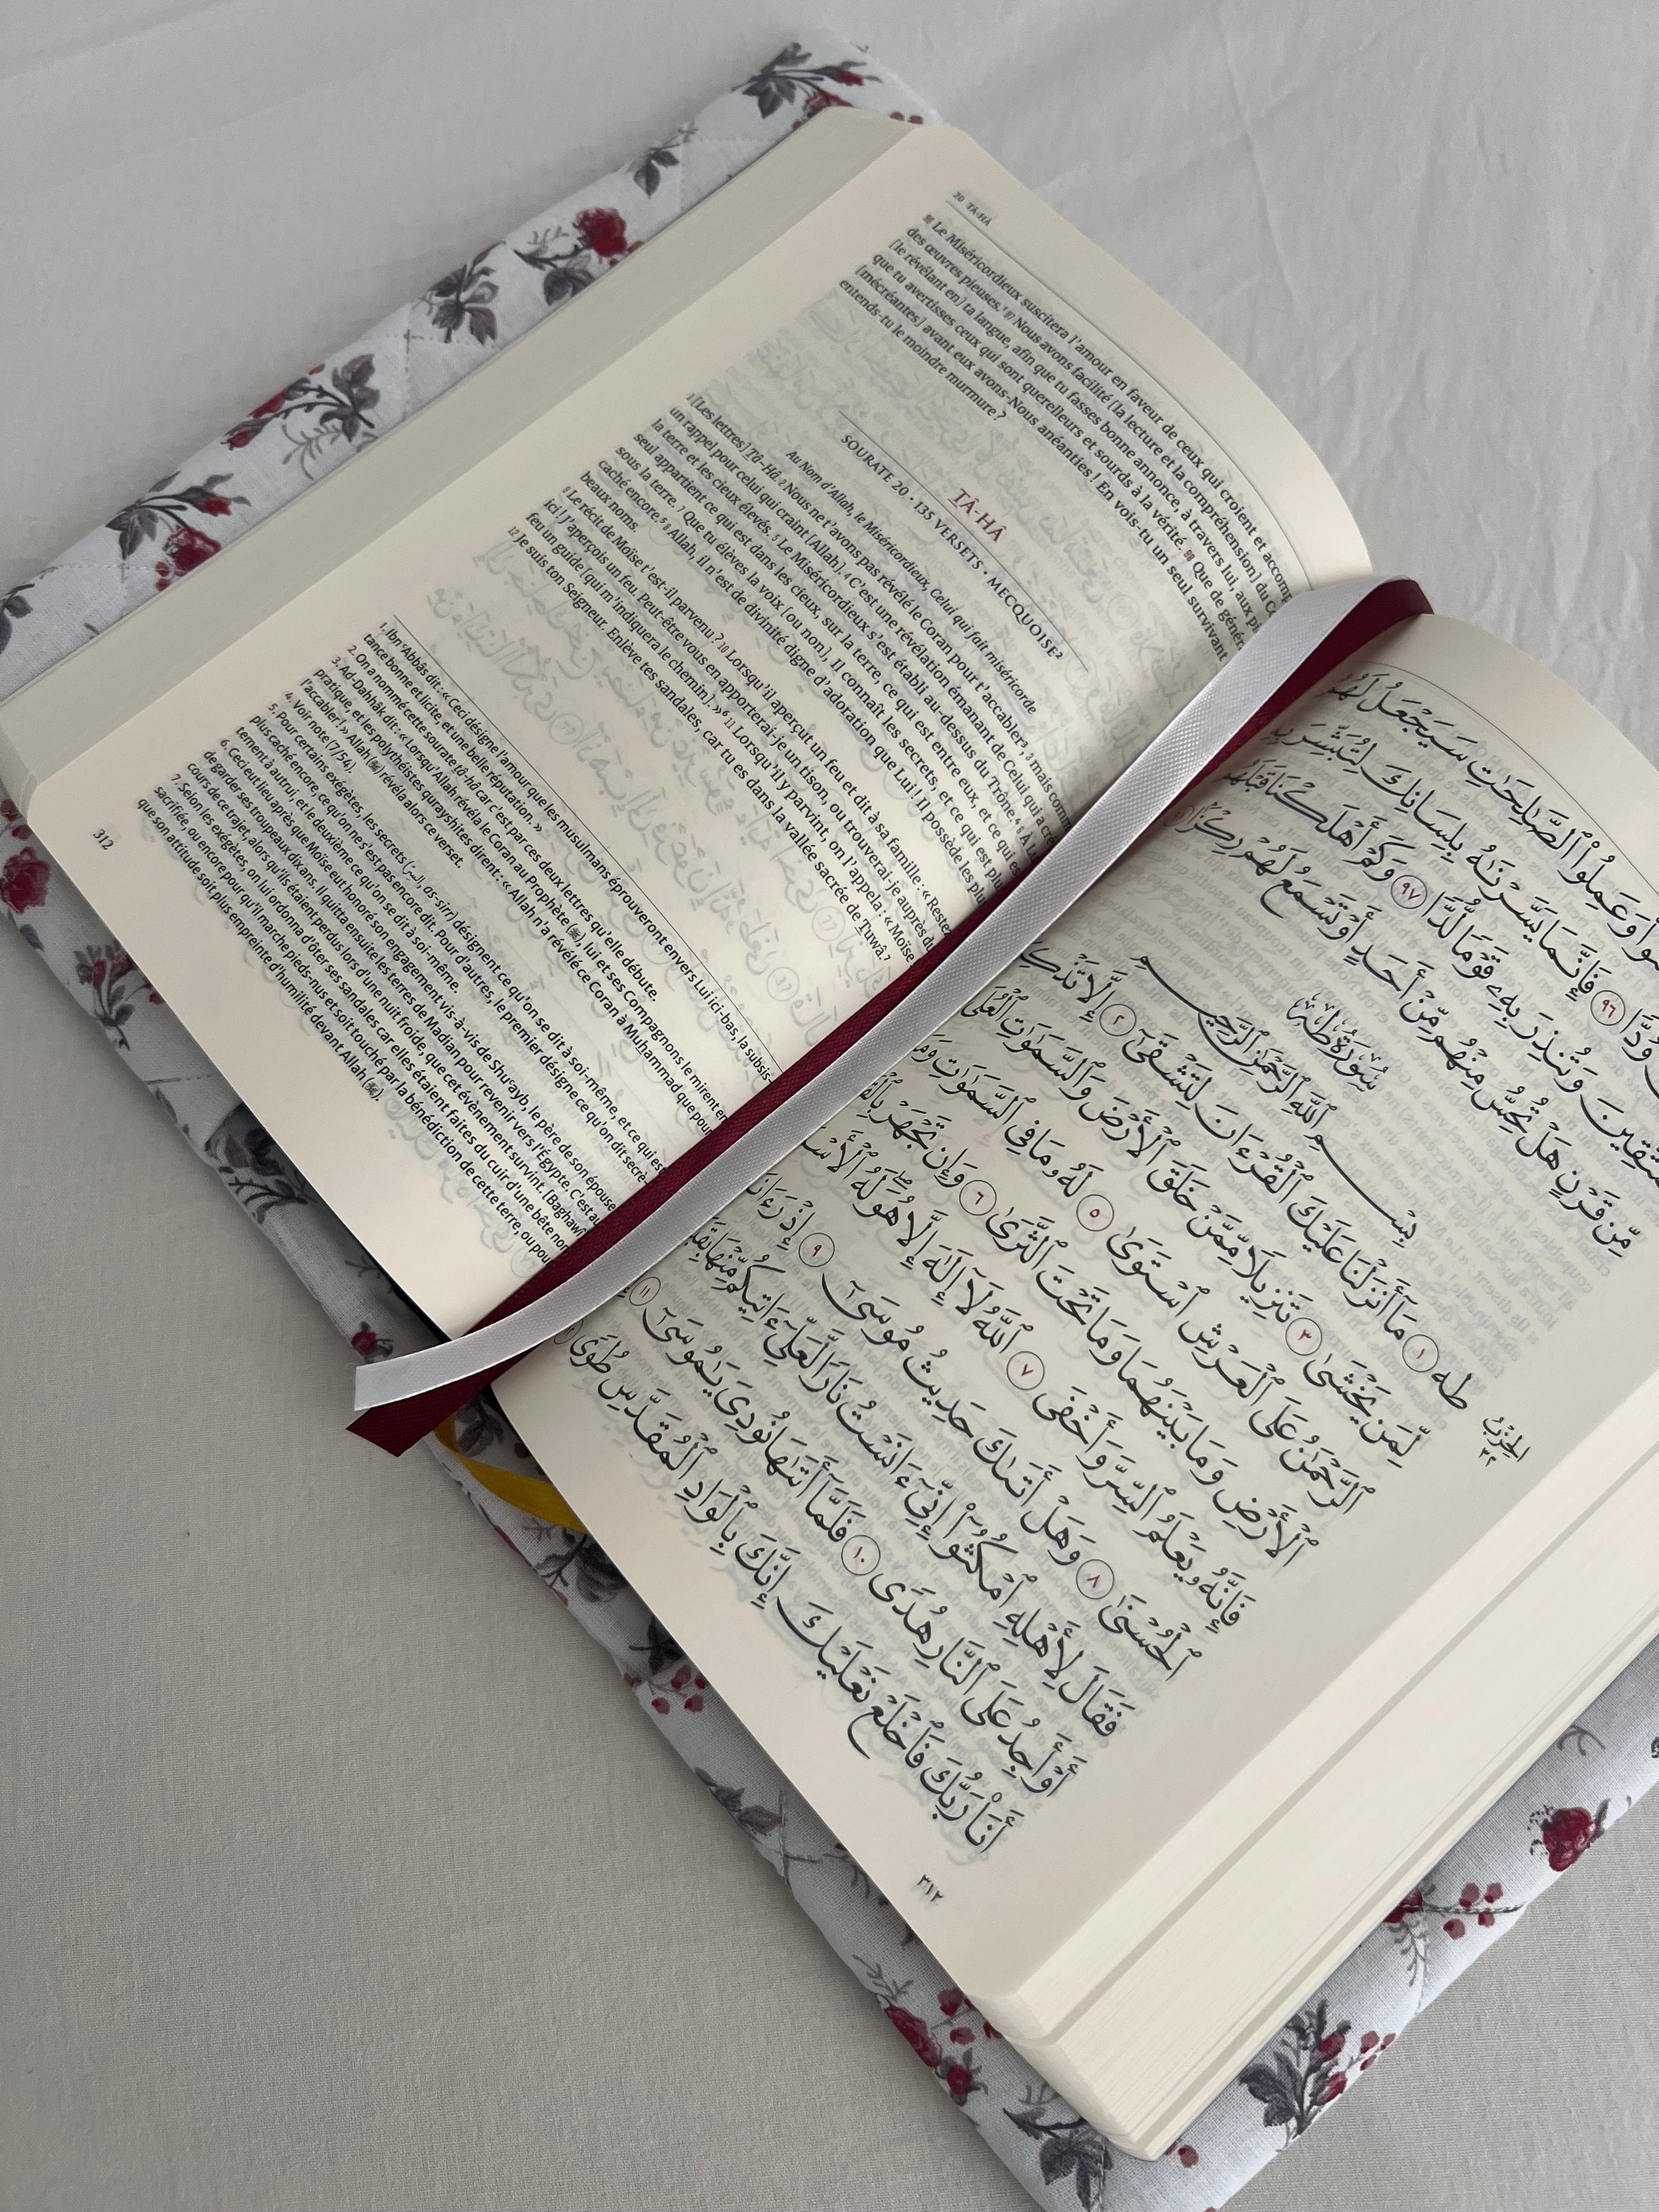 20 TÂ-HÂ
96 Le Miséricordieux suscitera l'amour en faveur de ceux qui croient et accom
des œuvres pieuses.¹ 97 Nous avons facilité [la lecture et la compréhension] du C
[le révélant en] ta langue, afin que tu fasses bonne annonce, à travers lui, aux pi
que tu avertisses ceux qui sont querelleurs et sourds à la vérité. 98 Que de génér
[mécréantes] avant eux avons-Nous anéanties ! En vois-tu un seul survivant
entends-tu le moindre murmure ?
TÂ-HÂ
SOURATE 20 • 135 VERSETS • MECQUOISE²
Au Nom d'Allah, le Miséricordieux, Celui qui fait miséricorde
1 [Les lettres] Tâ-Hâ. 2 Nous ne t'avons pas révélé le Coran pour t'accabler³, 3 mais comm
un rappel pour celui qui craint [Allah]. 4 C'est une révélation émanant de Celui qui a cré
la terre et les cieux élevés. 5 Le Miséricordieux s'est établi au-dessus du Trône.⁴ 6 À Lu
seul appartient ce qui est dans les cieux, sur la terre, ce qui est entre eux, et ce qui es
sous la terre. 7 Que tu élèves la voix [ou non], Il connaît les secrets, et ce qui est plus
caché encore.⁵ 8 Allah, il n'est de divinité digne d'adoration que Lui ! Il possède les plu
beaux noms.
9 Le récit de Moïse t'est-il parvenu ? 10 Lorsqu'il aperçut un feu et dit à sa famille : « Restez
ici ! J'aperçois un feu. Peut-être vous en apporterai-je un tison, ou trouverai-je auprès du
feu un guide [qui m'indiquera le chemin]. »⁶ 11 Lorsqu'il y parvint, on l'appela : « Moïse
12 Je suis ton Seigneur. Enlève tes sandales, car tu es dans la vallée sacrée de Tuwâ.⁷
1. Ibn ʿAbbâs dit : « Ceci désigne l'amour que les musulmans éprouveront envers Lui ici-bas, la subsis-
tance bonne et licite, et une belle réputation. »
2. On a nommé cette sourate tâ-hâ car c'est par ces deux lettres qu'elle débute.
3. Ad-Dahhâk dit : « Lorsqu'Allah révéla le Coran au Prophète (ﷺ), lui et ses Compagnons le mirent en
pratique, et les polythéistes qurayshites dirent : « Allah n'a révélé ce Coran à Muhammad que pour
l'accabler ! » Allah (ﷻ) révéla alors ce verset.
4. Voir note (7/54).
5. Pour certains exégètes, les secrets (السر, as-sirr) désignent ce qu'on se dit à soi-même, et ce qui est
plus caché encore, ce qu'on ne s'est pas encore dit. Pour d'autres, le premier désigne ce qu'on dit secrè-
tement à autrui, et le deuxième ce qu'on se dit à soi-même.
6. Ceci eut lieu après que Moïse eut honoré son engagement vis-à-vis de Shuʿayb, le père de son épouse
de garder ses troupeaux dix ans. Il quitta ensuite les terres de Madian pour revenir vers l'Égypte, c'est au
cours de ce trajet, alors qu'ils étaient perdus lors d'une nuit froide, que cet évènement survint. [Baghawî
7. Selon les exégètes, on lui ordonna d'ôter ses sandales car elles étaient faites du cuir d'une bête non
sacrifiée, ou encore pour qu'il marche pieds-nus et soit touché par la bénédiction de cette terre, ou pour
que son attitude soit plus empreinte d'humilité devant Allah (ﷻ).
312
وَعَمِلُوا۟ ٱلصَّـٰلِحَـٰتِ سَيَجْعَلُ لَهُمُ
وُدًّا ٩٦ فَإِنَّمَا يَسَّرْنَـٰهُ بِلِسَانِكَ لِتُبَشِّرَ بِهِ
ٱلْمُتَّقِينَ وَتُنذِرَ بِهِۦ قَوْمًا لُّدًّا ٩٧ وَكَمْ أَهْلَكْنَا قَبْلَهُم
مِّن قَرْنٍ هَلْ تُحِسُّ مِنْهُم مِّنْ أَحَدٍ أَوْ تَسْمَعُ لَهُمْ رِكْزًۢا
سُورَةُ طه
بِسْمِ ٱللَّهِ ٱلرَّحْمَـٰنِ ٱلرَّحِيمِ
طه ١ مَآ أَنزَلْنَا عَلَيْكَ ٱلْقُرْءَانَ لِتَشْقَىٰٓ ٢ إِلَّا تَذْكِ
لِّمَن يَخْشَىٰ ٣ تَنزِيلًا مِّمَّنْ خَلَقَ ٱلْأَرْضَ وَٱلسَّمَـٰوَٰتِ ٱلْعُلَى
ٱلرَّحْمَـٰنُ عَلَى ٱلْعَرْشِ ٱسْتَوَىٰ ٥ لَهُۥ مَا فِى ٱلسَّمَـٰوَٰتِ وَمَ
ٱلْأَرْضِ وَمَا بَيْنَهُمَا وَمَا تَحْتَ ٱلثَّرَىٰ ٦ وَإِن تَجْهَرْ بِٱلْقَ
فَإِنَّهُۥ يَعْلَمُ ٱلسِّرَّ وَأَخْفَى ٧ ٱللَّهُ لَآ إِلَـٰهَ إِلَّا هُوَ لَهُ ٱلْأَسْ
ٱلْحُسْنَىٰ ٨ وَهَلْ أَتَىٰكَ حَدِيثُ مُوسَىٰٓ ٩ إِذْ رَءَا نَا
فَقَالَ لِأَهْلِهِ ٱمْكُثُوٓا۟ إِنِّىٓ ءَانَسْتُ نَارًا لَّعَلِّىٓ ءَاتِيكُم مِّنْهَا بِقَبَ
أَوْ أَجِدُ عَلَى ٱلنَّارِ هُدًى ١٠ فَلَمَّآ أَتَىٰهَا نُودِىَ يَـٰمُوسَىٰٓ ١١
أَنَا۠ رَبُّكَ فَٱخْلَعْ نَعْلَيْكَ إِنَّكَ بِٱلْوَادِ ٱلْمُقَدَّسِ طُوًى
الحزب
٣٢
٣١٢